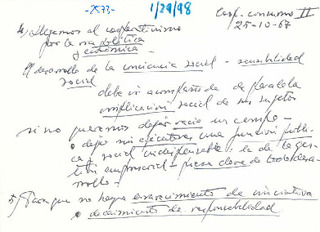 -2573-
1/29/98
Coop. consumo II
25-10-67
4) Llegamos al cooperativismo
por la vía política
y económica
El desarrollo de la conciencia social - sensibilidad
social
debe ir acompañada de paralela
complicación social de los sujetos
si no queremos dejar vacío un campo -
o dejar sin ejecutivos una función públi-
ca y social indispensable: la de la ges-
tión empresarial - pieza clave de todo desa-
rrollo -
5) Para que no haya enrarecimiento de iniciativa
o decaimiento de responsabilidad